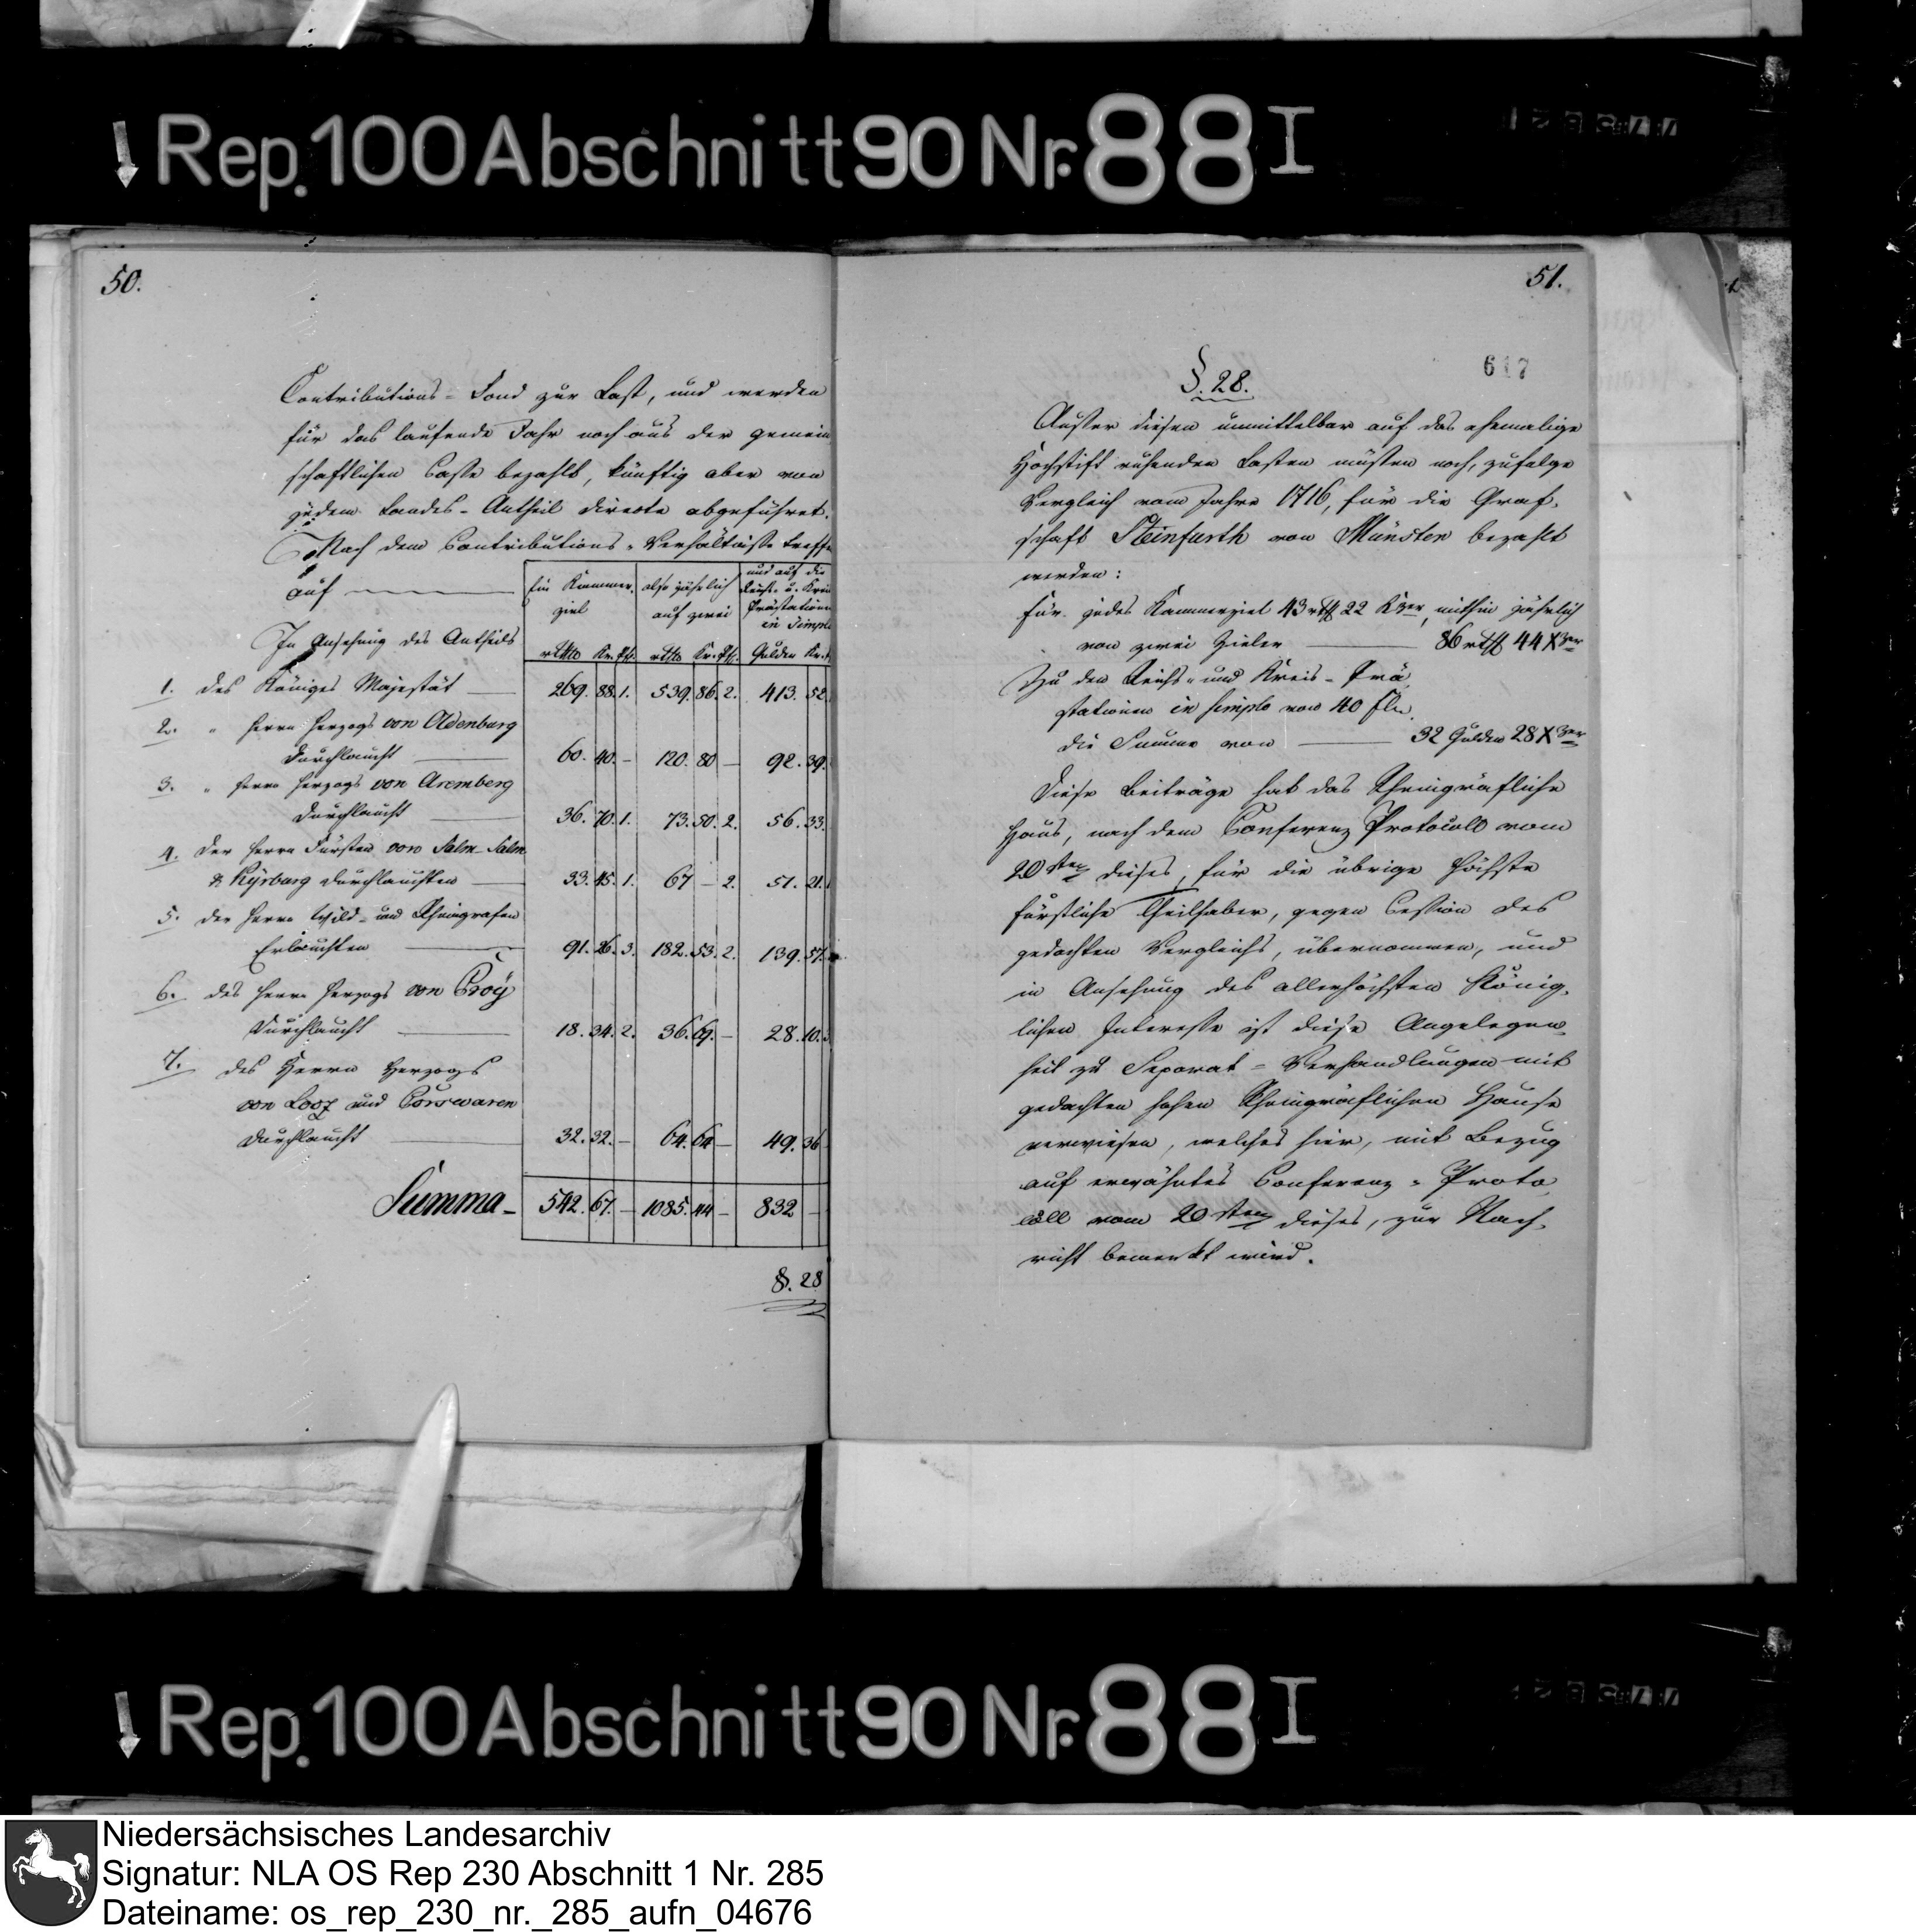 Rep. 100 Abschnitt 90 Nr. 88 I
50.
Contributions-Fond zur Last, und werden
für das laufende Jahr noch aus der gemein
schaftlichen Casse bezahlt, künftig aber von
jedem Landes-Antheil directe abgeführet.
Nach dem Contributions-Verhältniße treffe
auf
Ein Kammer-ziel
also jährlich auf zwei
und auf die Reichs- u. Kreis Prästationen in Simplo
In Ansehung des Antheils
rthlr Kr. Pf. rthlr Kr. Pf. Gulden Kr.
1. des Königes Majestät — 269. 88. 1. 539. 86. 2. 413. 52
2. " Herrn Herzogs von Oldenburg
Durchlaucht — 60. 40. – 120. 80 – 92. 39.
3. " Herrn Herzogs von Aremberg
Durchlaucht — 36. 70. 1. 73. 50. 2. 56. 33.
4. der Herrn Fürsten von Salm-Salm
& Kyrburg Durchlauchten — 33. 45. 1. 67 – 2. 51. 21.
5. der Herrn Wild- und Rheingrafen
Erlauchten — 91. 26. 3. 182. 53. 2. 139. 57.
6. des Herrn Herzogs von Croÿ
Durchlaucht — 18. 34. 2. 36. 69. – 28. 10.
7. des Herrn Herzogs
von Looz und Corswaren
Durchlaucht — 32. 32. – 64. 64 – 49. 36
Summa – 542. 67. – 1085. 44 – 832 –
§. 28
51.
617
§. 28.
Ausser diesen unmittelbar auf das ehemalige
Hochstift ruhenden Lasten müssen noch, zufolge
Vergleich vom Jahre 1716, für die Graf-
schaft Steinfurth von Münster bezahlt
werden:
für jedes Kammerziel 43 rthlr 22 Kzer, mithin jährlich
von zwei Zieler — 86 rthlr 44 Xzer
Zu den Reichs- und Kreis-Prä
stationen in simplo von 40 Fln
die Summe von — 32 Gulden 28 Xzer
Diese Beiträge hat das Rheingräfliche
Haus, nach dem Conferenz Protocoll vom
20sten dieses, für die übrige Höchste
fürstliche Theilhaber, gegen Cession des
gedachten Vergleichs, übernommen, und
in Ansehung des allerhöchsten König-
lichen Interesse ist diese Angelegen-
heit zu Separat-Verhandlungen mit
gedachten hohen Rheingräflichen Hause
verwiesen, welches hier, mit Bezug
auf erwähntes Conferenz-Proto
coll vom 20sten dieses, zur Nach-
richt bemerkt wird.
Rep. 100 Abschnitt 90 Nr. 88 I
Niedersächsisches Landesarchiv
Signatur: NLA OS Rep 230 Abschnitt 1 Nr. 285
Dateiname: os_rep_230_nr._285_aufn_04676